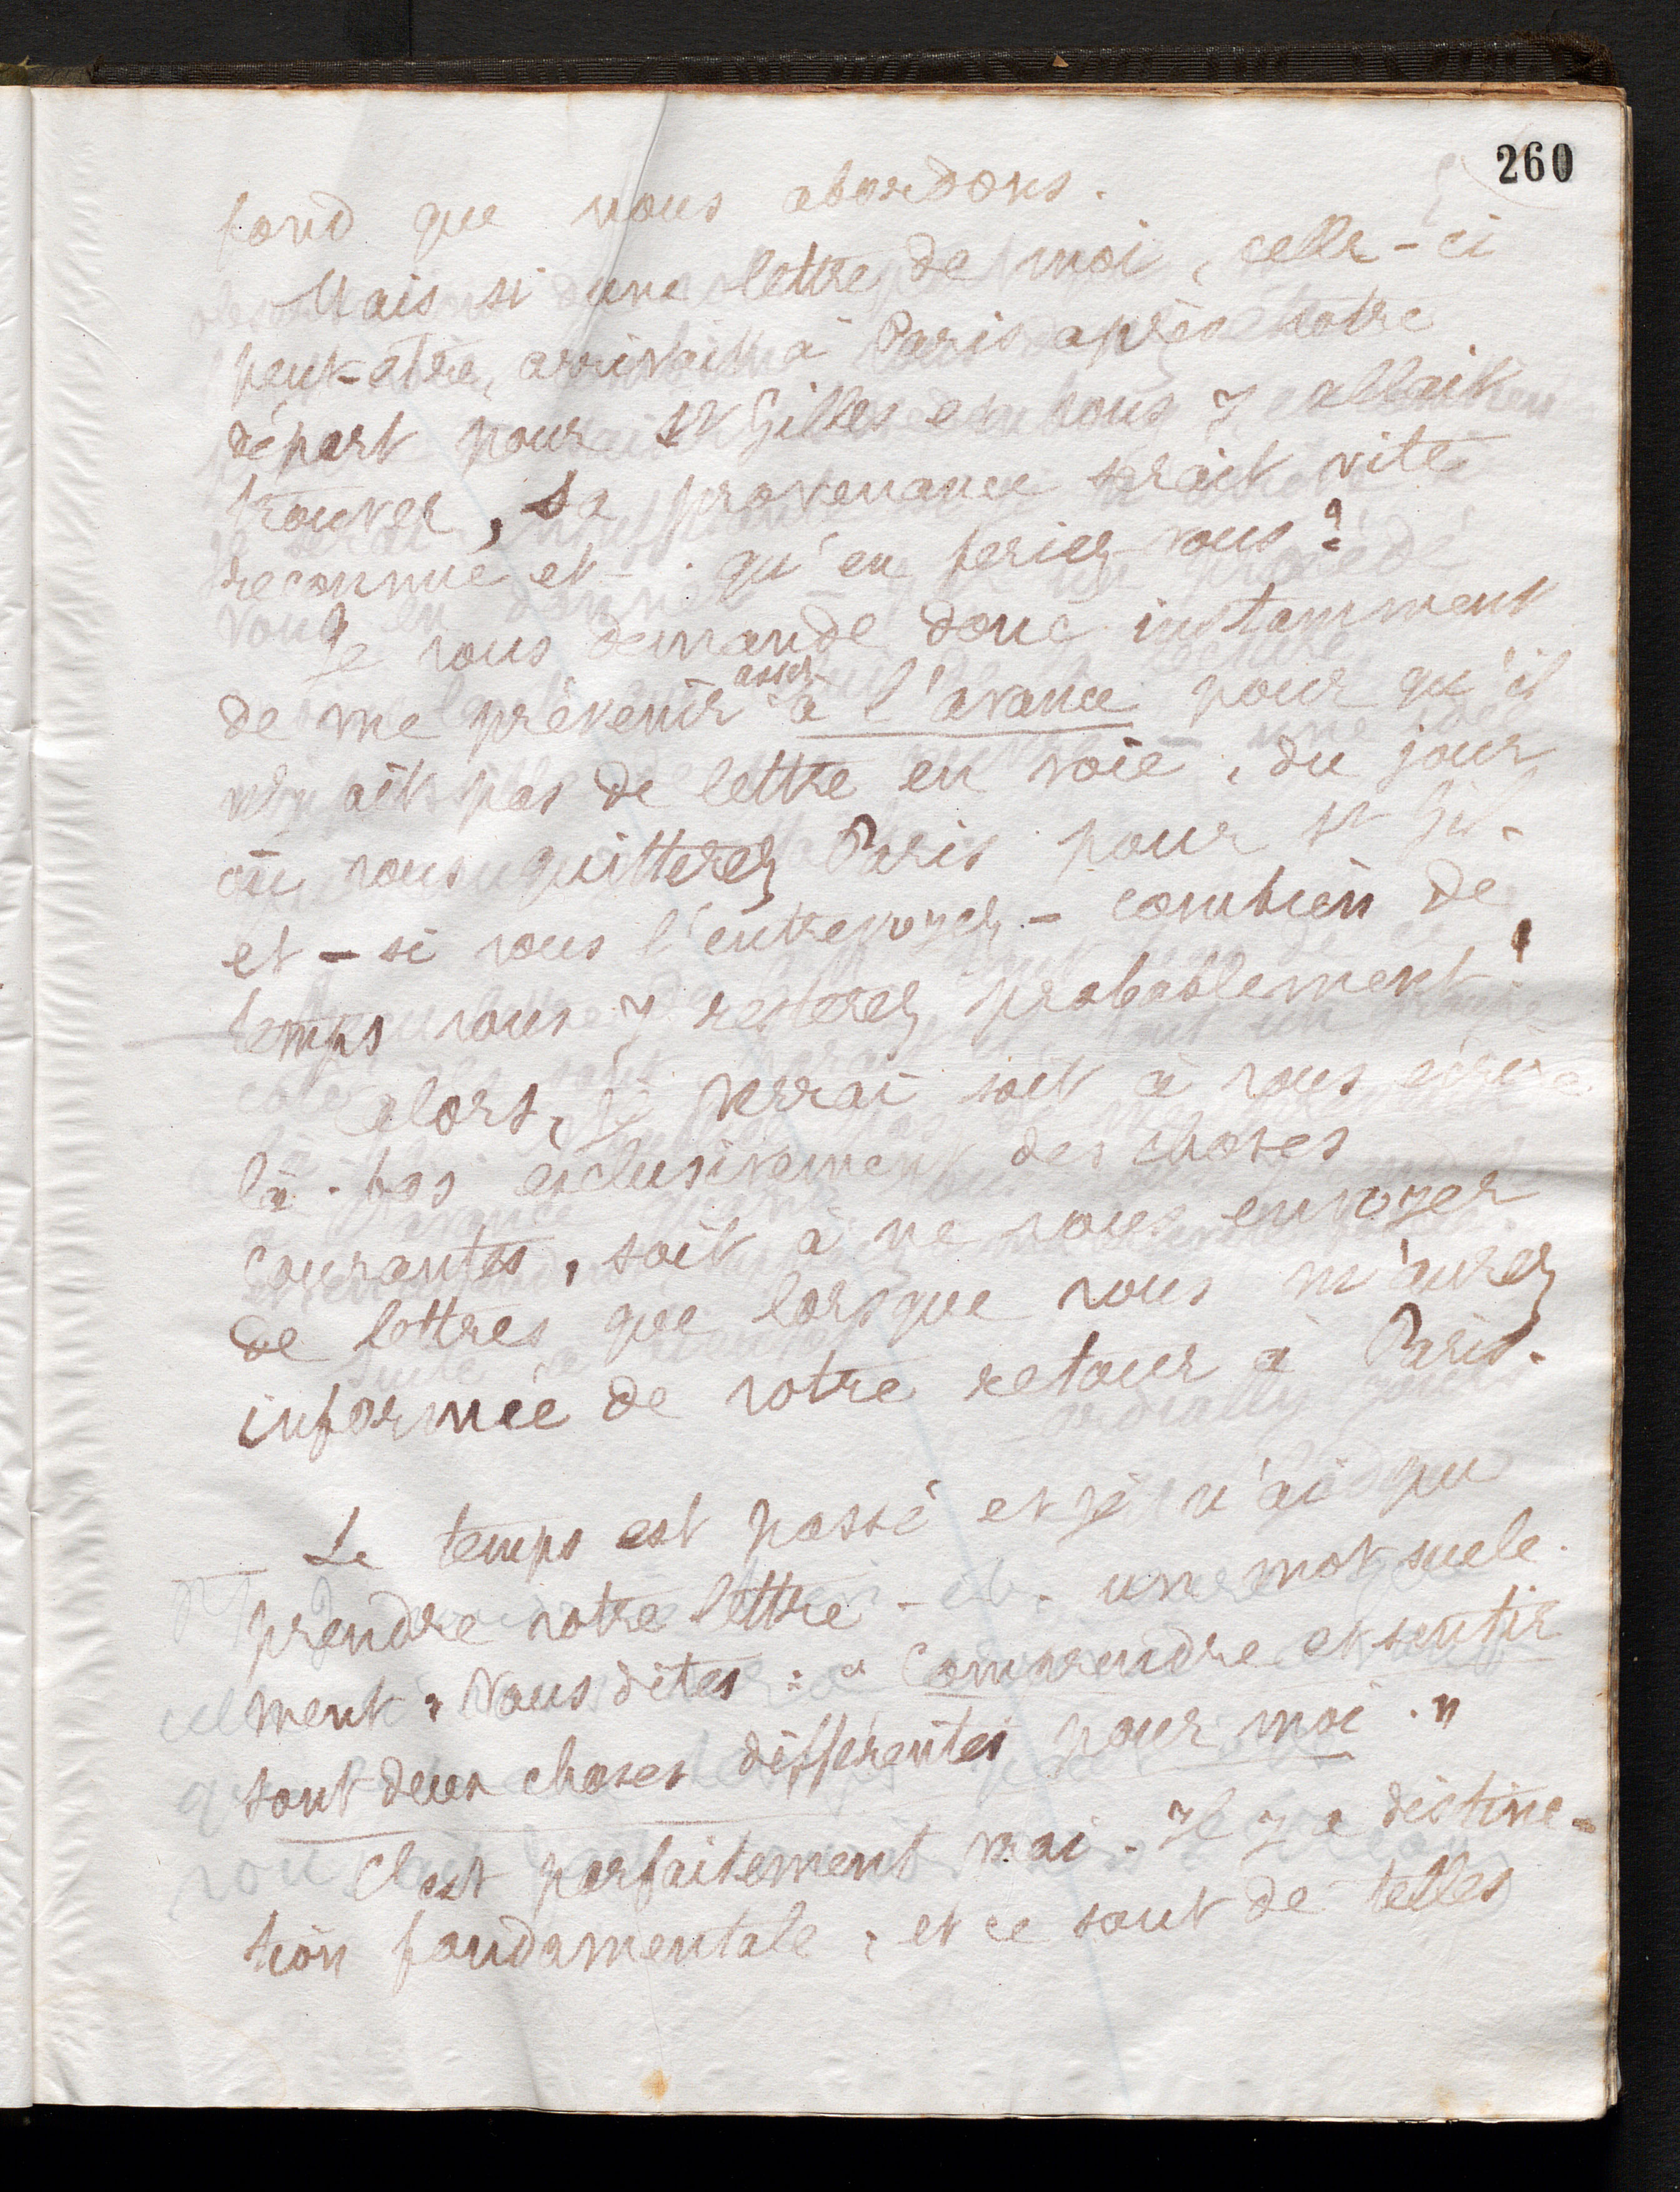 260
fond que nous abordons.
Mais si une lettre de moi, celle-ci
peut-être, arrivait à Paris après votre
départ pour St Gilles et vous y allait
trouver, sa provenance serait vite
reconnue et - qu'en feriez-vous ?
Je vous demande donc instamment
assez
de me prévenir à l'avance pour qu'il
n'y ait pas de lettre en voie, du jour
où vous quitterez Paris pour St Gil.
et - si vous l'entrevoyez - combien de
temps vous y resterez probablement !
Alors, je verrai soit à vous écrire
là-bas exclusivement des choses
courantes, soit à ne vous envoyer
de lettres que lorsque vous m'aurez
informée de votre retour à Paris.
Le temps est passé et je n'ai pu
prendre votre lettre - un mot seule-
ment. Vous dites : " Comprendre et sentir
sont deux choses différentes pour moi. "
C'est parfaitement vrai. Il y a distinc-
tion fondamentale, et ce sont de telles